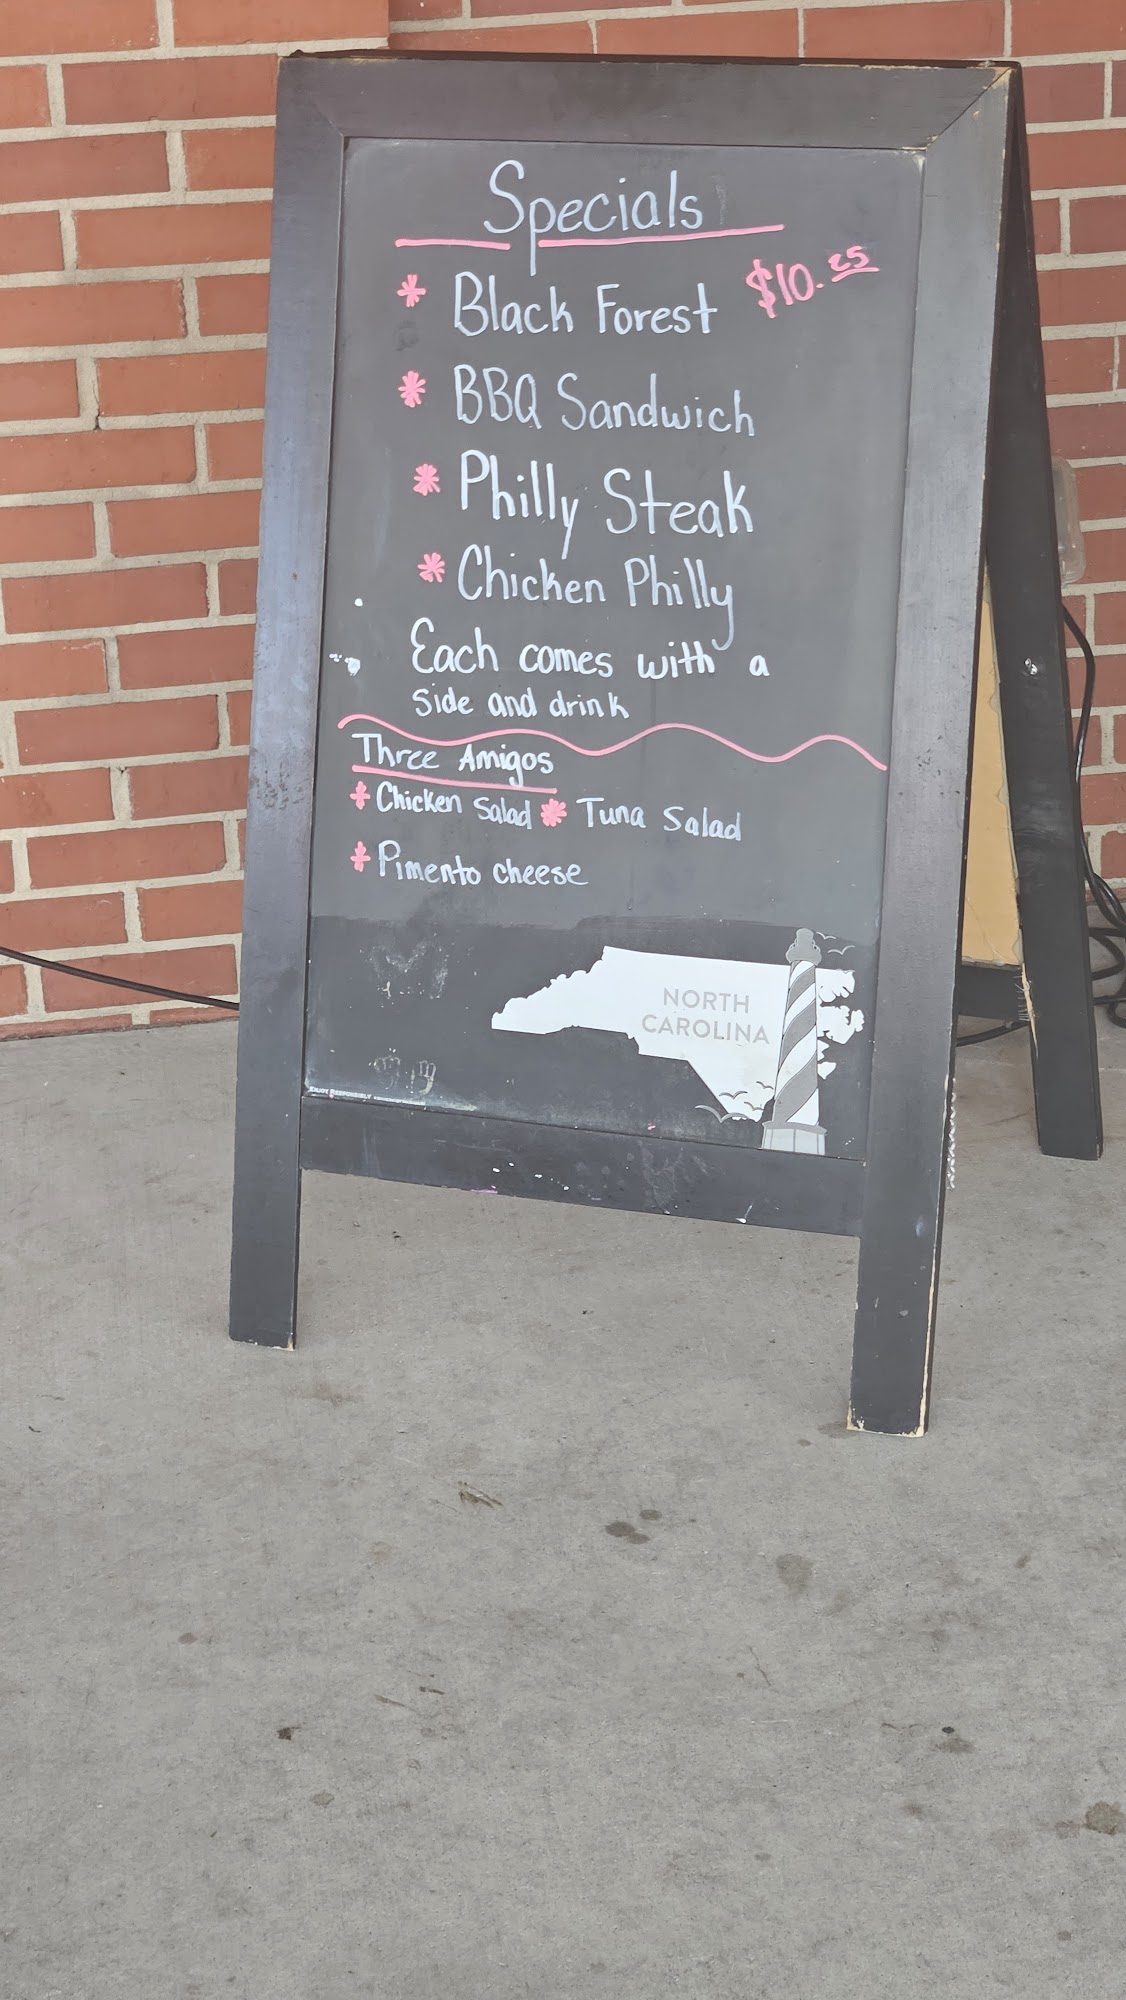 Specials
* Black Forest $10.25
* BBQ Sandwich
* Philly Steak
* Chicken Philly
Each comes with a
side and drink
Three Amigos
* Chicken Salad * Tuna Salad
* Pimento cheese
NORTH
CAROLINA
ENJOY RESPONSIBLY